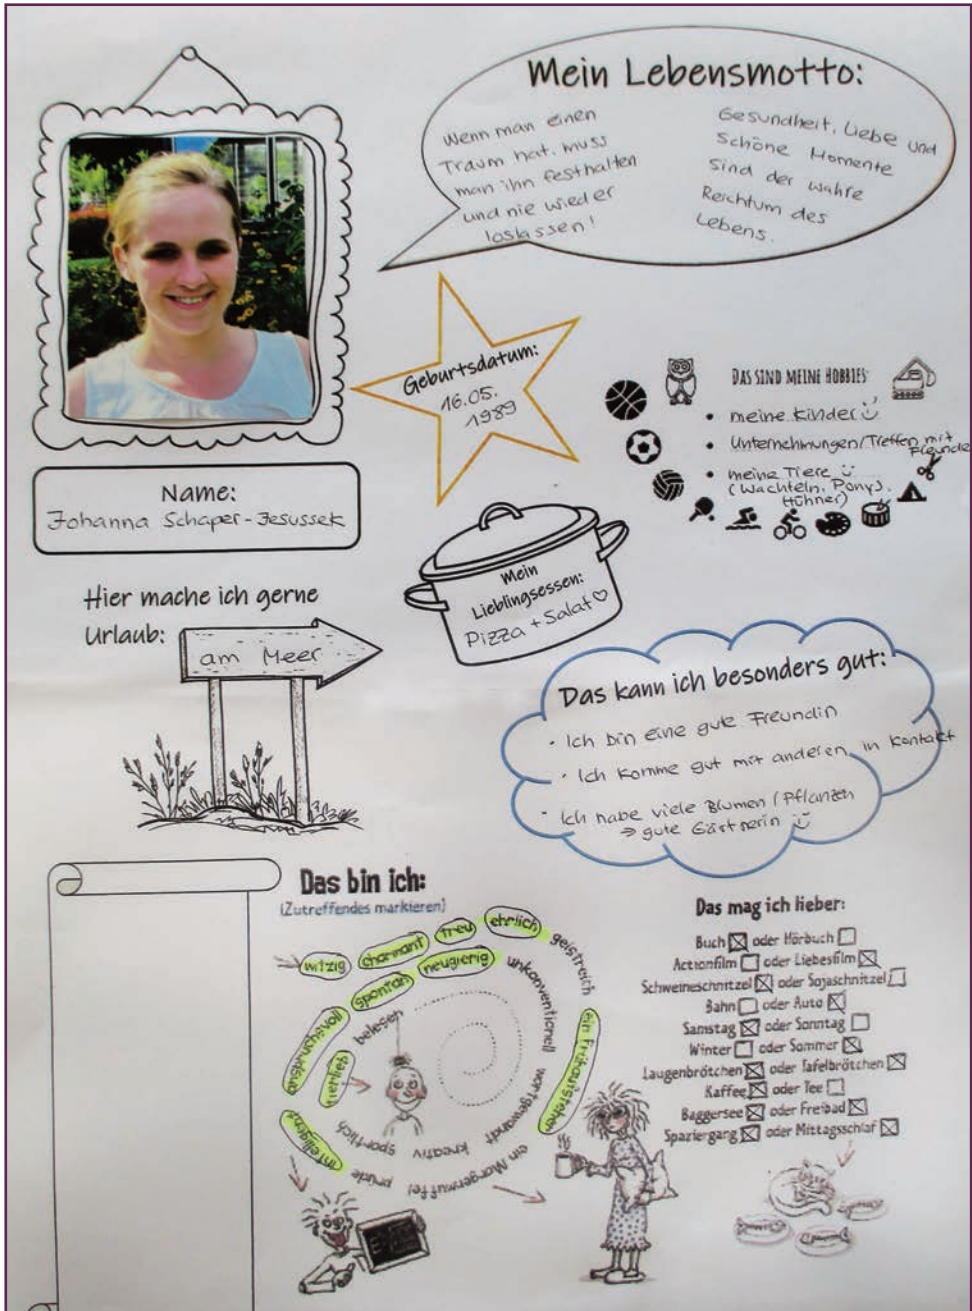 Mein Lebensmotto:
Wenn man einen
Traum hat, muss
man ihn festhalten
und nie wieder
loslassen!
Gesundheit, Liebe und
Schöne Momente
sind der wahre
Reichtum des
Lebens.
Geburtsdatum:
16.05.
1989
DAS SIND MEINE HOBBIES:
• meine Kinder
• Unternehmungen/Treffen mit
Freunde
• meine Tiere
(Wachteln, Ponys,
Hühner)
Name:
Johanna Schaper-Jesussek
Mein
Lieblingsessen:
Pizza + Salat♡
Hier mache ich gerne
Urlaub:
am Meer
Das kann ich besonders gut:
• Ich bin eine gute Freundin
• Ich komme gut mit anderen in Kontakt
• Ich habe viele Blumen / Pflanzen
⇒ gute Gärtnerin
Das bin ich:
(Zutreffendes markieren)
witzig charmant treu ehrlich geistreich
ein Frühaufsteher
ein Morgenmuffel prüde
intelligent
anspruchsvoll spontan neugierig unkonventionell
wortgewandt kreativ sportlich
tierlieb belesen
Das mag ich lieber:
Buch ☒ oder Hörbuch ☐
Actionfilm ☐ oder Liebesfilm ☒
Schweineschnitzel ☒ oder Sojaschnitzel ☐
Bahn ☐ oder Auto ☒
Samstag ☒ oder Sonntag ☐
Winter ☐ oder Sommer ☒
Laugenbrötchen ☒ oder Tafelbrötchen ☒
Kaffee ☒ oder Tee ☐
Baggersee ☒ oder Freibad ☒
Spaziergang ☒ oder Mittagsschlaf ☒